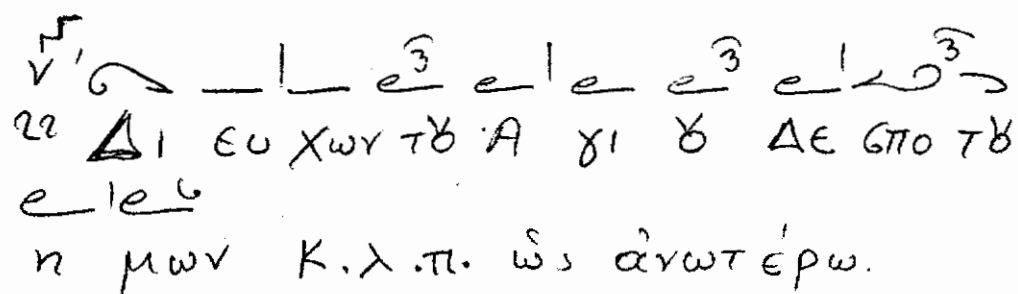 22 Δι ευ χων τȣ Α γι ȣ Δε σπο τȣ
η μων κ.λ.π. ὡς ἀνωτέρω.